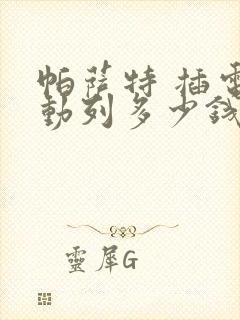 帕萨特 插電
動列多少錢
靈犀G